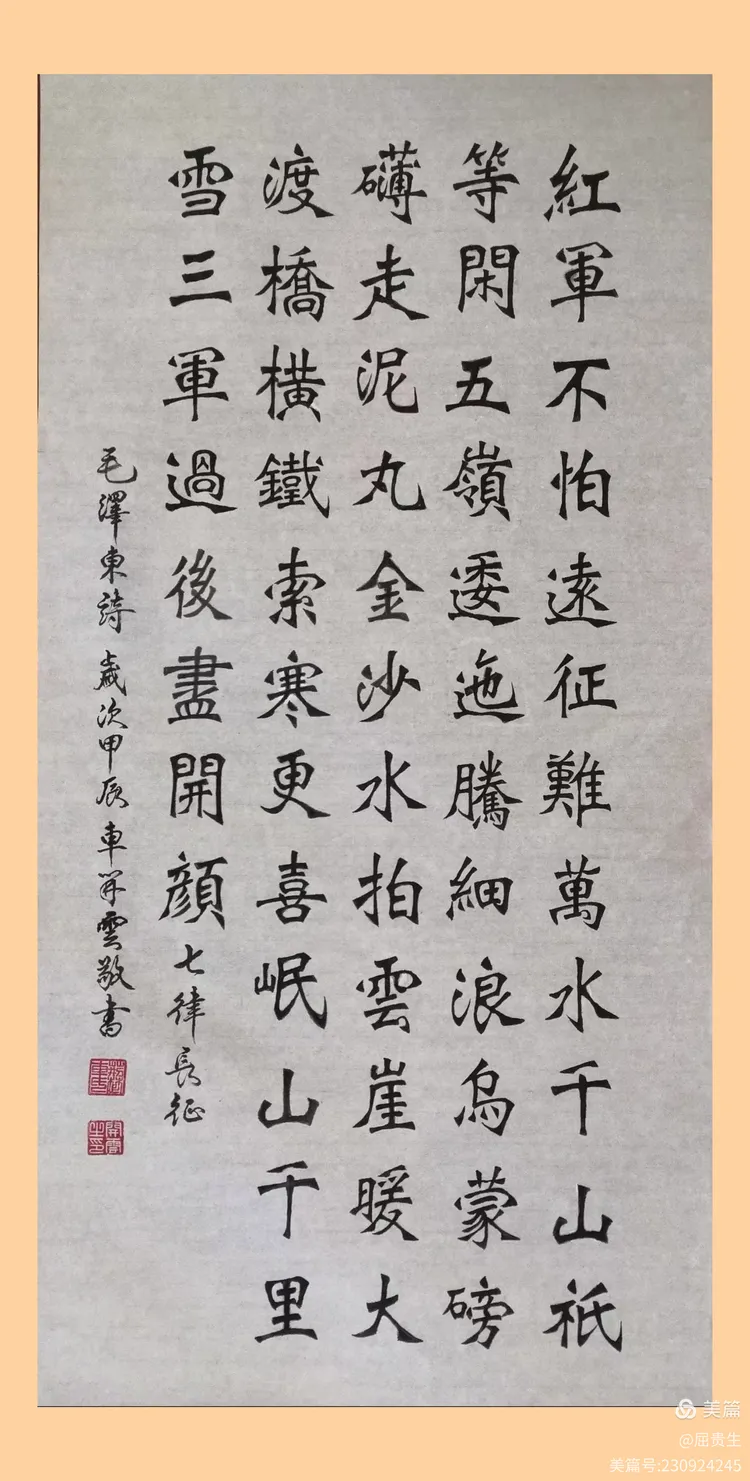 紅軍不怕遠征難萬水千山祇
等閑五嶺逶迤騰細浪烏蒙磅
礴走泥丸金沙水拍雲崖暖大
渡橋橫鐵索寒更喜岷山千里
雪三軍過後盡開顏七律長征
毛澤東詩歲次甲辰車雲敬書
美篇
@屈贵生
美篇号:230924245